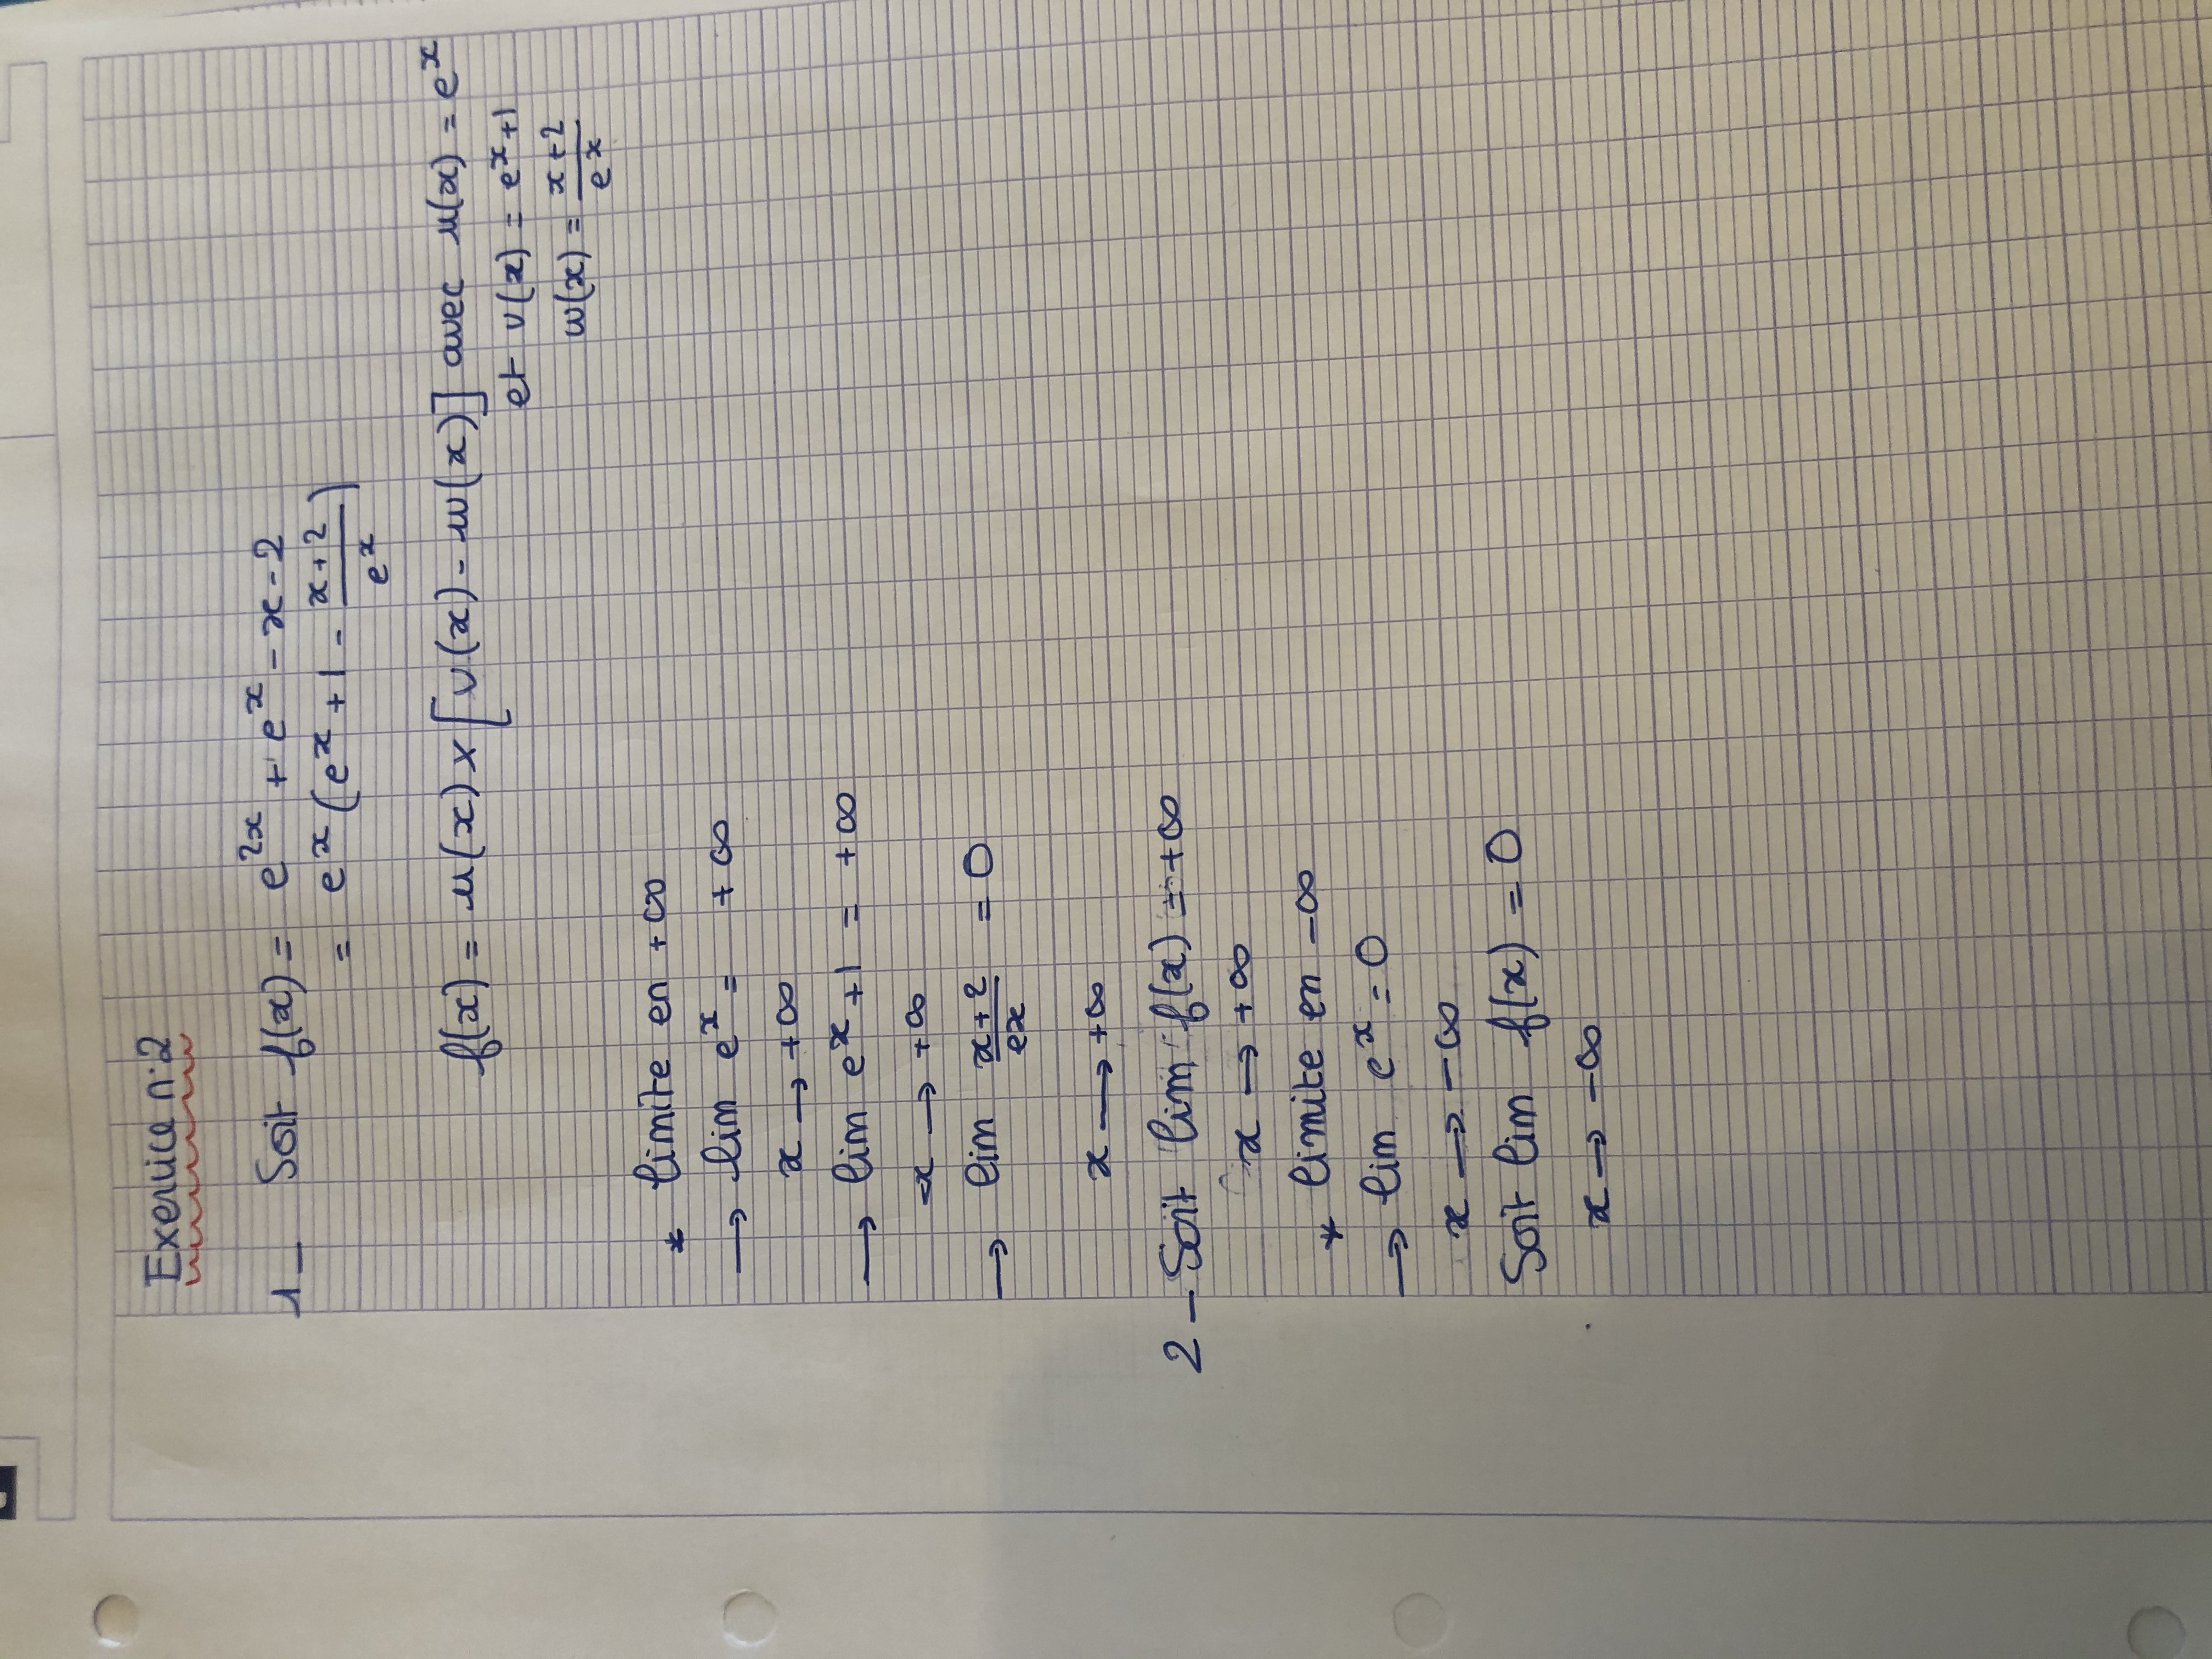 Exercice n°2
1- Soit f(x) = e^{2x} + e^x - x - 2
= e^x (e^x + 1 - \frac{x+2}{e^x})
f(x) = u(x) × [v(x) - w(x)] avec u(x) = e^x
et v(x) = e^x + 1
w(x) = \frac{x+2}{e^x}
* limite en +∞
→ lim e^x = +∞
x → +∞
→ lim e^x + 1 = +∞
x → +∞
→ lim \frac{x+2}{ex} = 0
x → +∞
2 - Soit lim f(x) = +∞
x → +∞
* limite en -∞
→ lim e^x = 0
x → -∞
Soit lim f(x) = 0
x → -∞